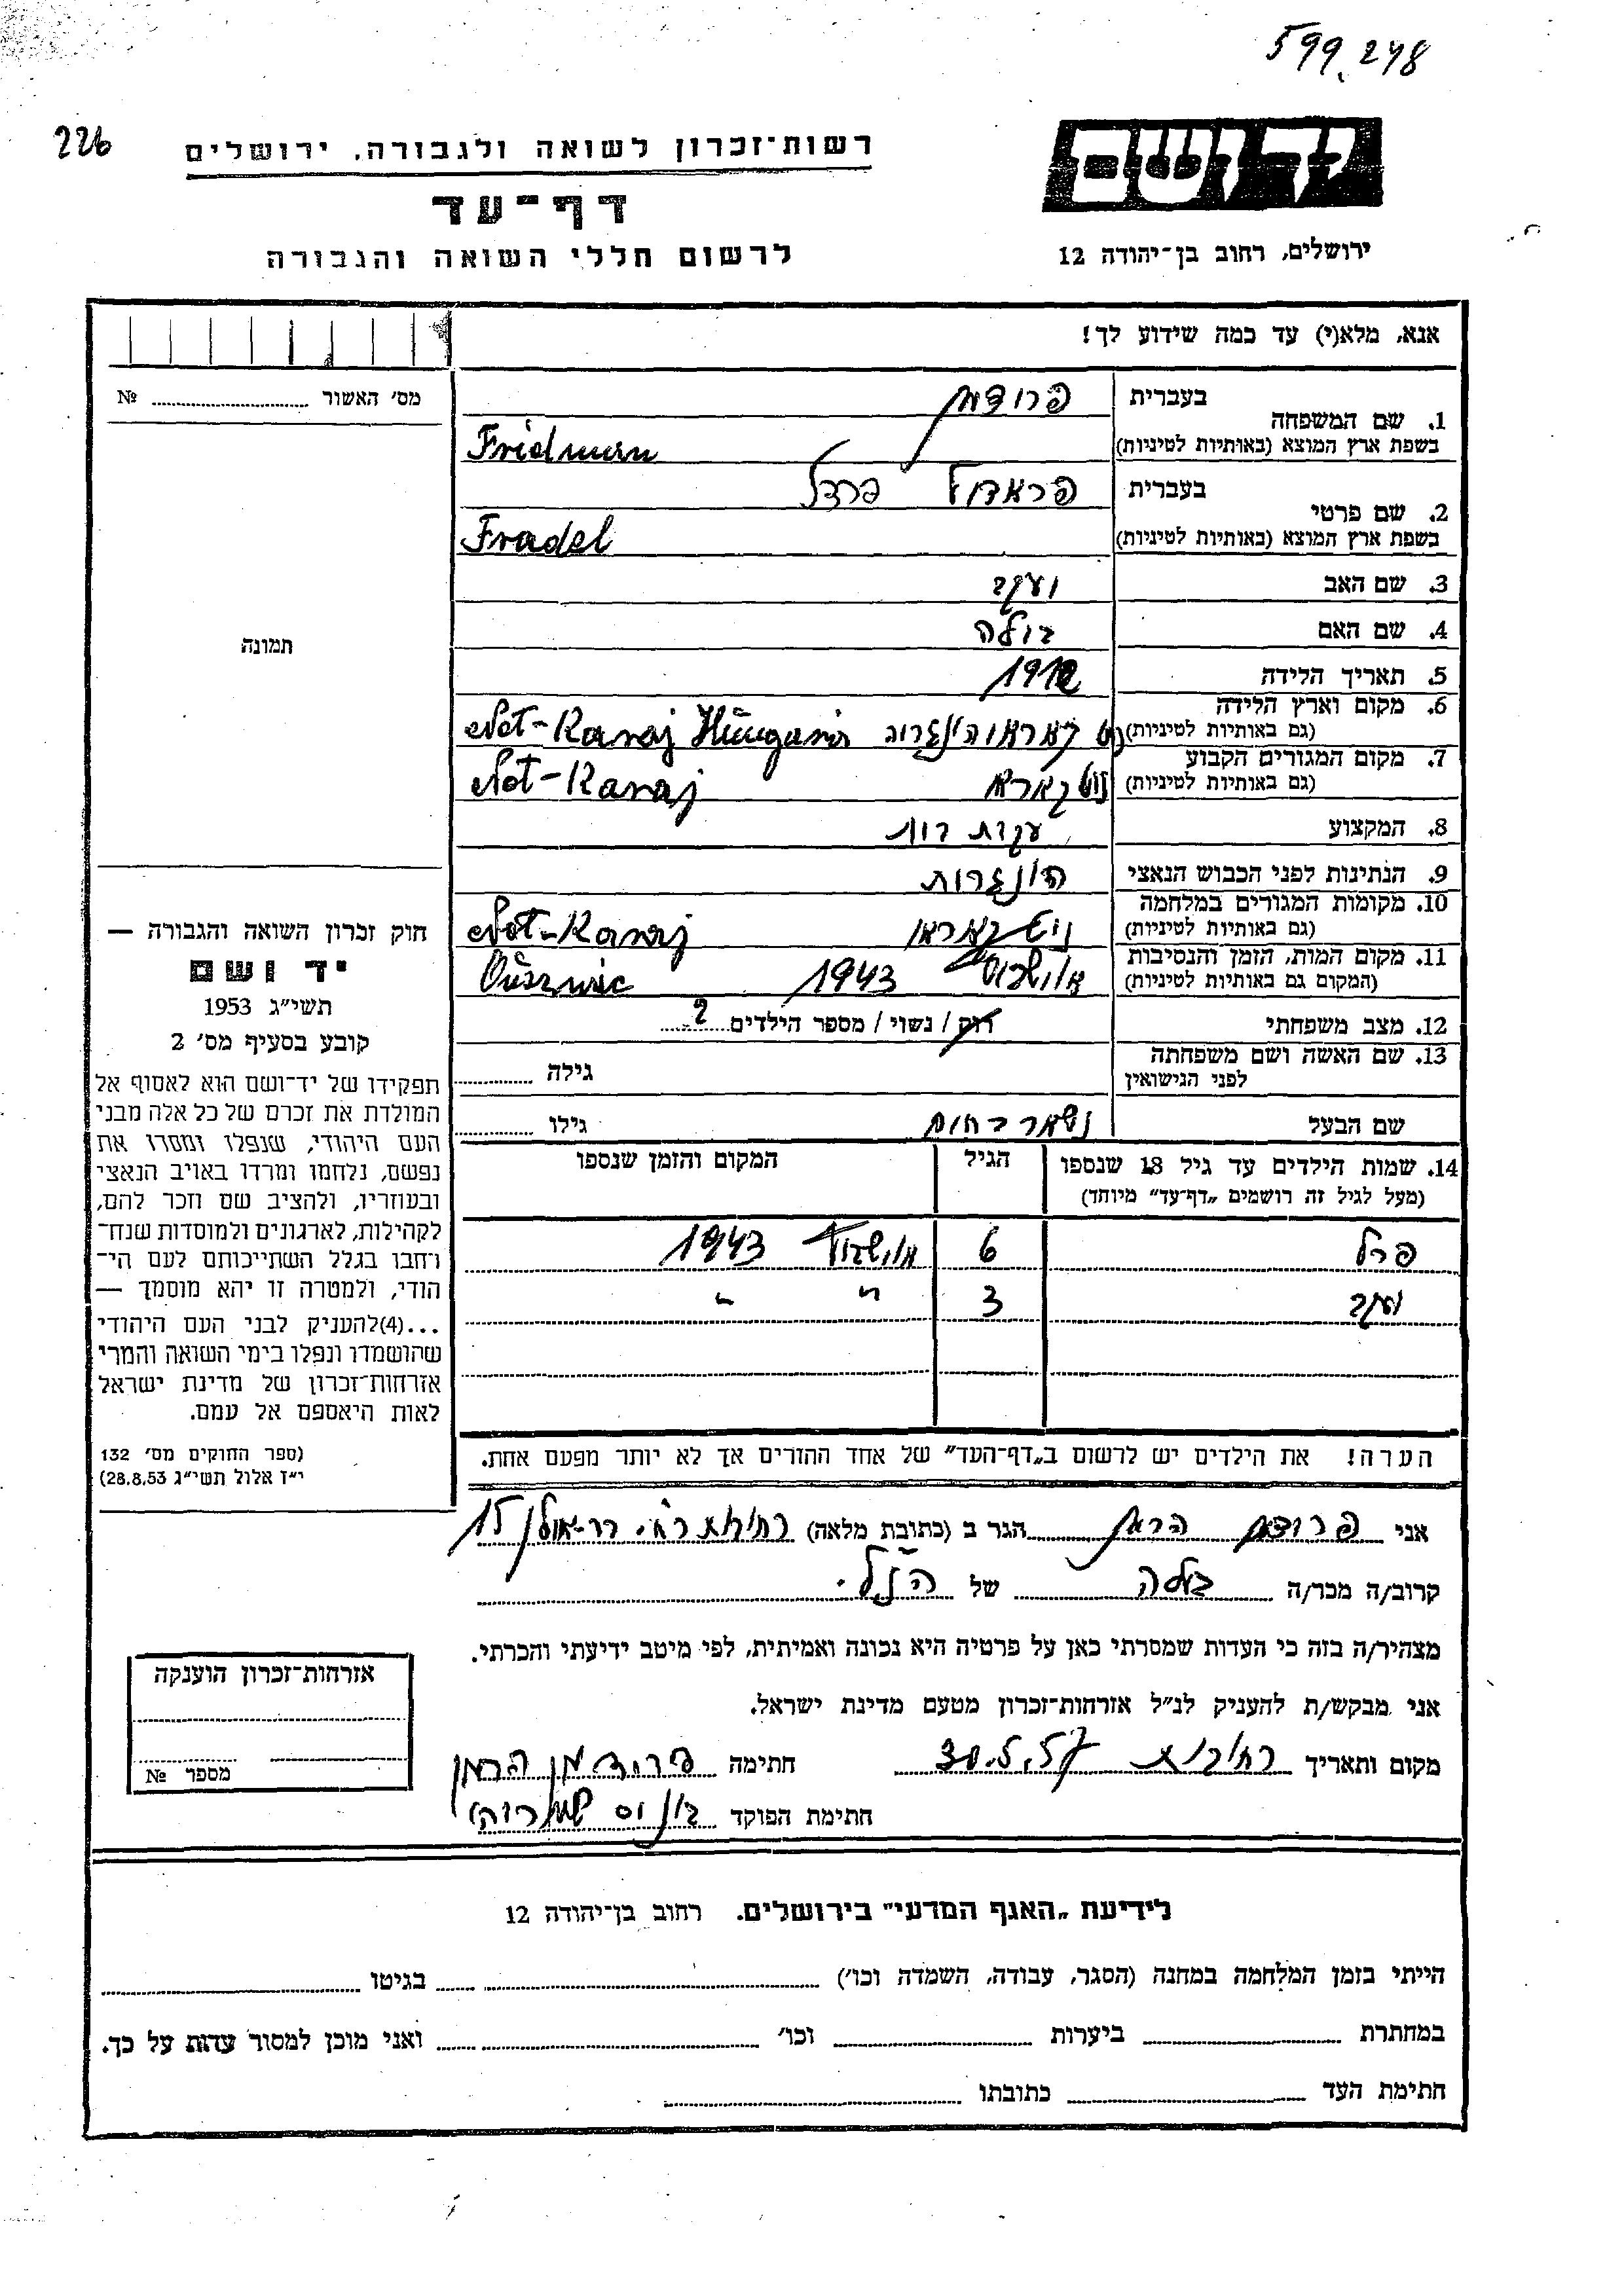 599.248
226
רשות־זכרון לשואה ולגבורה, ירושלים
דף־עד
לרשום חללי השואה והגבורה
יד ושם
ירושלים, רחוב בן־יהודה 12
אנא, מלא(י) עד כמה שידוע לך!
מס׳ האשור № 
1. שם המשפחה
בעברית פרידמן
בשפת ארץ המוצא (באותיות לטיניות) Fridman
2. שם פרטי
בעברית פראדל
בשפת ארץ המוצא (באותיות לטיניות) Fradel
3. שם האב יעקב
4. שם האם בילה
5. תאריך הלידה
6. מקום וארץ הלידה
(גם באותיות לטיניות) Not-Karaj
7. מקום המגורים הקבוע
(גם באותיות לטיניות) Not-Karaj
8. המקצוע עקרת בית
9. הנתינות לפני הכבוש הנאצי הונגרית
10. מקומות המגורים במלחמה
(גם באותיות לטיניות) Not-Karaj
11. מקום המות, הזמן והנסיבות
(המקום גם באותיות לטיניות) 1943
12. מצב משפחתי רוק / נשוי / מספר הילדים 2
13. שם האשה ושם משפחתה
לפני הנישואין גילה
שם הבעל גילו
14. שמות הילדים עד גיל 18 שנספו הגיל המקום והזמן שנספו
(מעל לגיל זה רושמים „דף־עד״ מיוחד)
פרל 6 1943
יעקב 3 " "
הערה! את הילדים יש לרשום ב„דף־העד״ של אחד ההורים אך לא יותר מפעם אחת.
תמונה
חוק זכרון השואה והגבורה —
יד ושם
תשי״ג 1953
קובע בסעיף מס׳ 2
תפקידו של יד־ושם הוא לאסוף אל
המולדת את זכרם של כל אלה מבני
העם היהודי, שנפלו ומסרו את
נפשם, נלחמו ומרדו באויב הנאצי
ובעוזריו, ולהציב שם וזכר להם,
לקהילות, לארגונים ולמוסדות שנח־
רחבו בגלל השתייכותם לעם הי־
הודי, ולמטרה זו יהא מוסמך —
...(4)להעניק לבני העם היהודי
שהושמדו ונפלו בימי השואה והמרי
אזרחות־זכרון של מדינת ישראל
לאות היאספם אל עמם.
(ספר החוקים מס׳ 132
י״ז אלול תשי״ג 28.8.53)
אני פרידמן הרמן הגר ב (כתובת מלאה) רחובות 15
קרוב/ה מכר/ה של הנ״ל.
מצהיר/ה בזה כי העדות שמסרתי כאן על פרטיה היא נכונה ואמיתית, לפי מיטב ידיעתי והכרתי.
אני מבקש/ת להעניק לנ״ל אזרחות־זכרון מטעם מדינת ישראל.
מקום ותאריך רחובות 30.5.57 חתימה פרידמן הרמן
חתימת הפוקד
אזרחות־זכרון הוענקה
מספר №
לידיעת „האגף המדעי״ בירושלים. רחוב בן־יהודה 12
הייתי בזמן המלחמה במחנה (הסגר, עבודה, השמדה וכו׳) בגיטו
במחתרת ביערות וכו׳ ואני מוכן למסור עדות על כך.
חתימת העד כתובתו